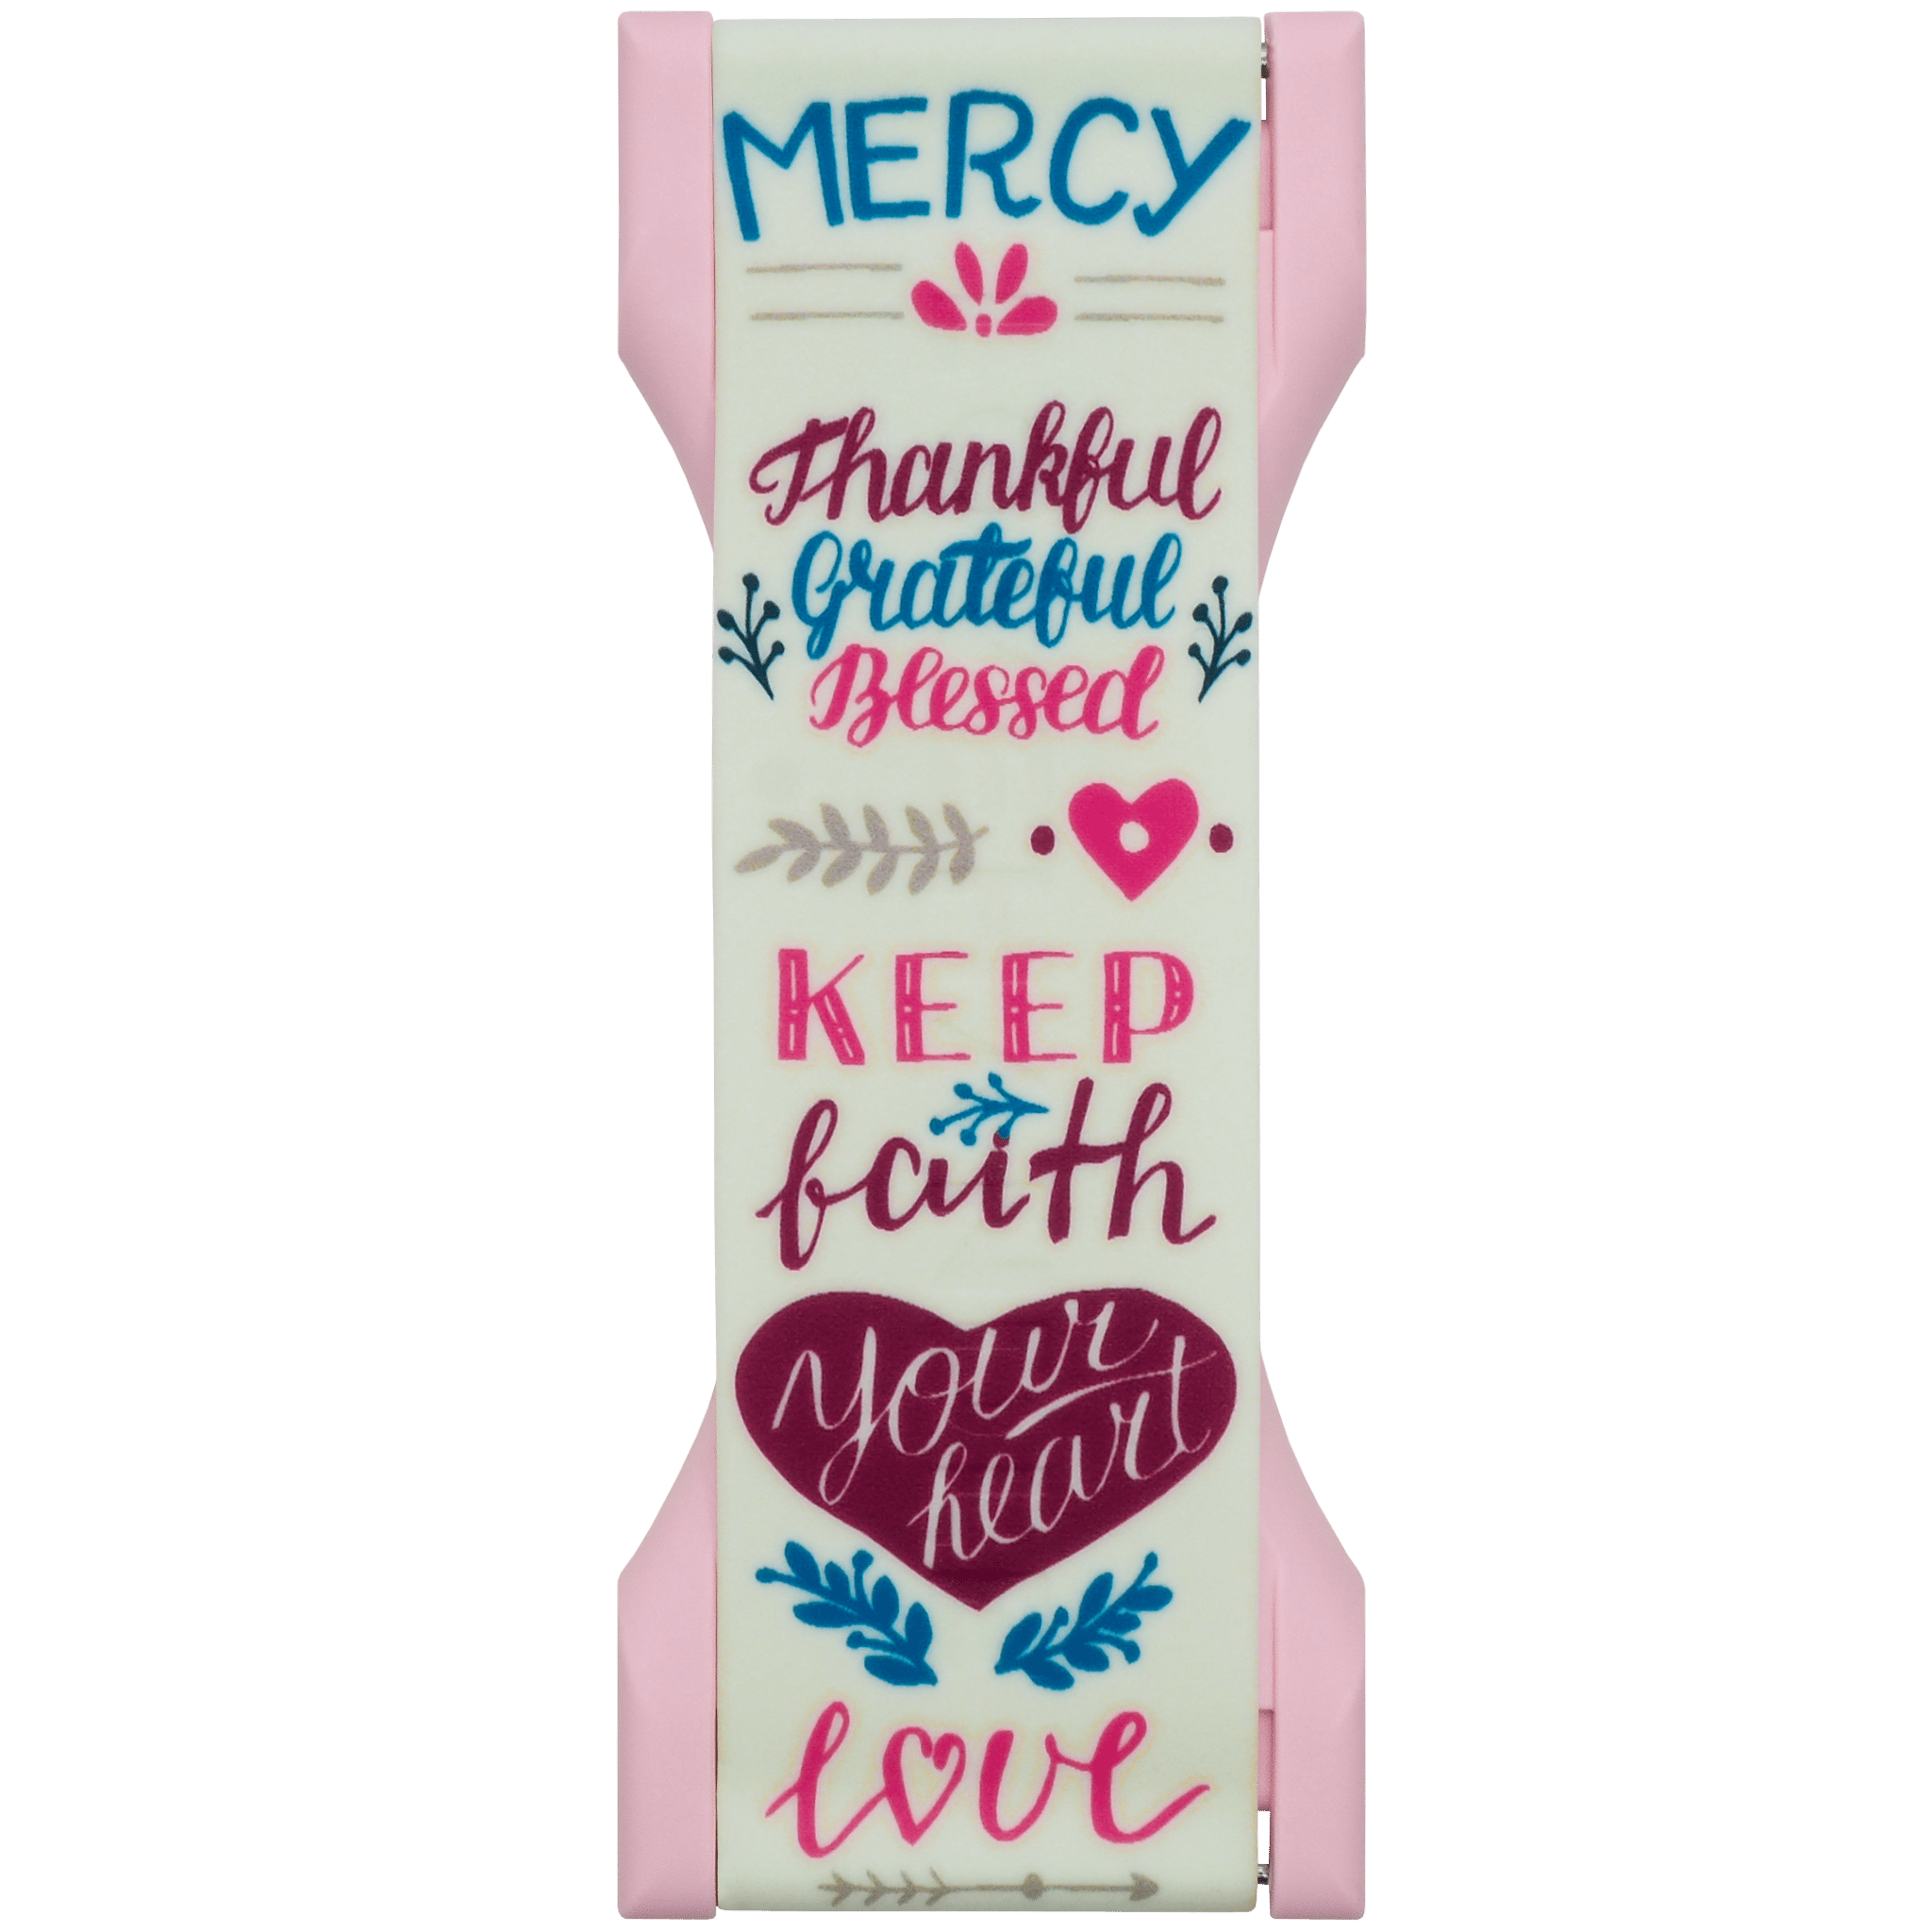 MERCY
Thankful
Grateful
Blessed
KEEP
faith
your
heart
love